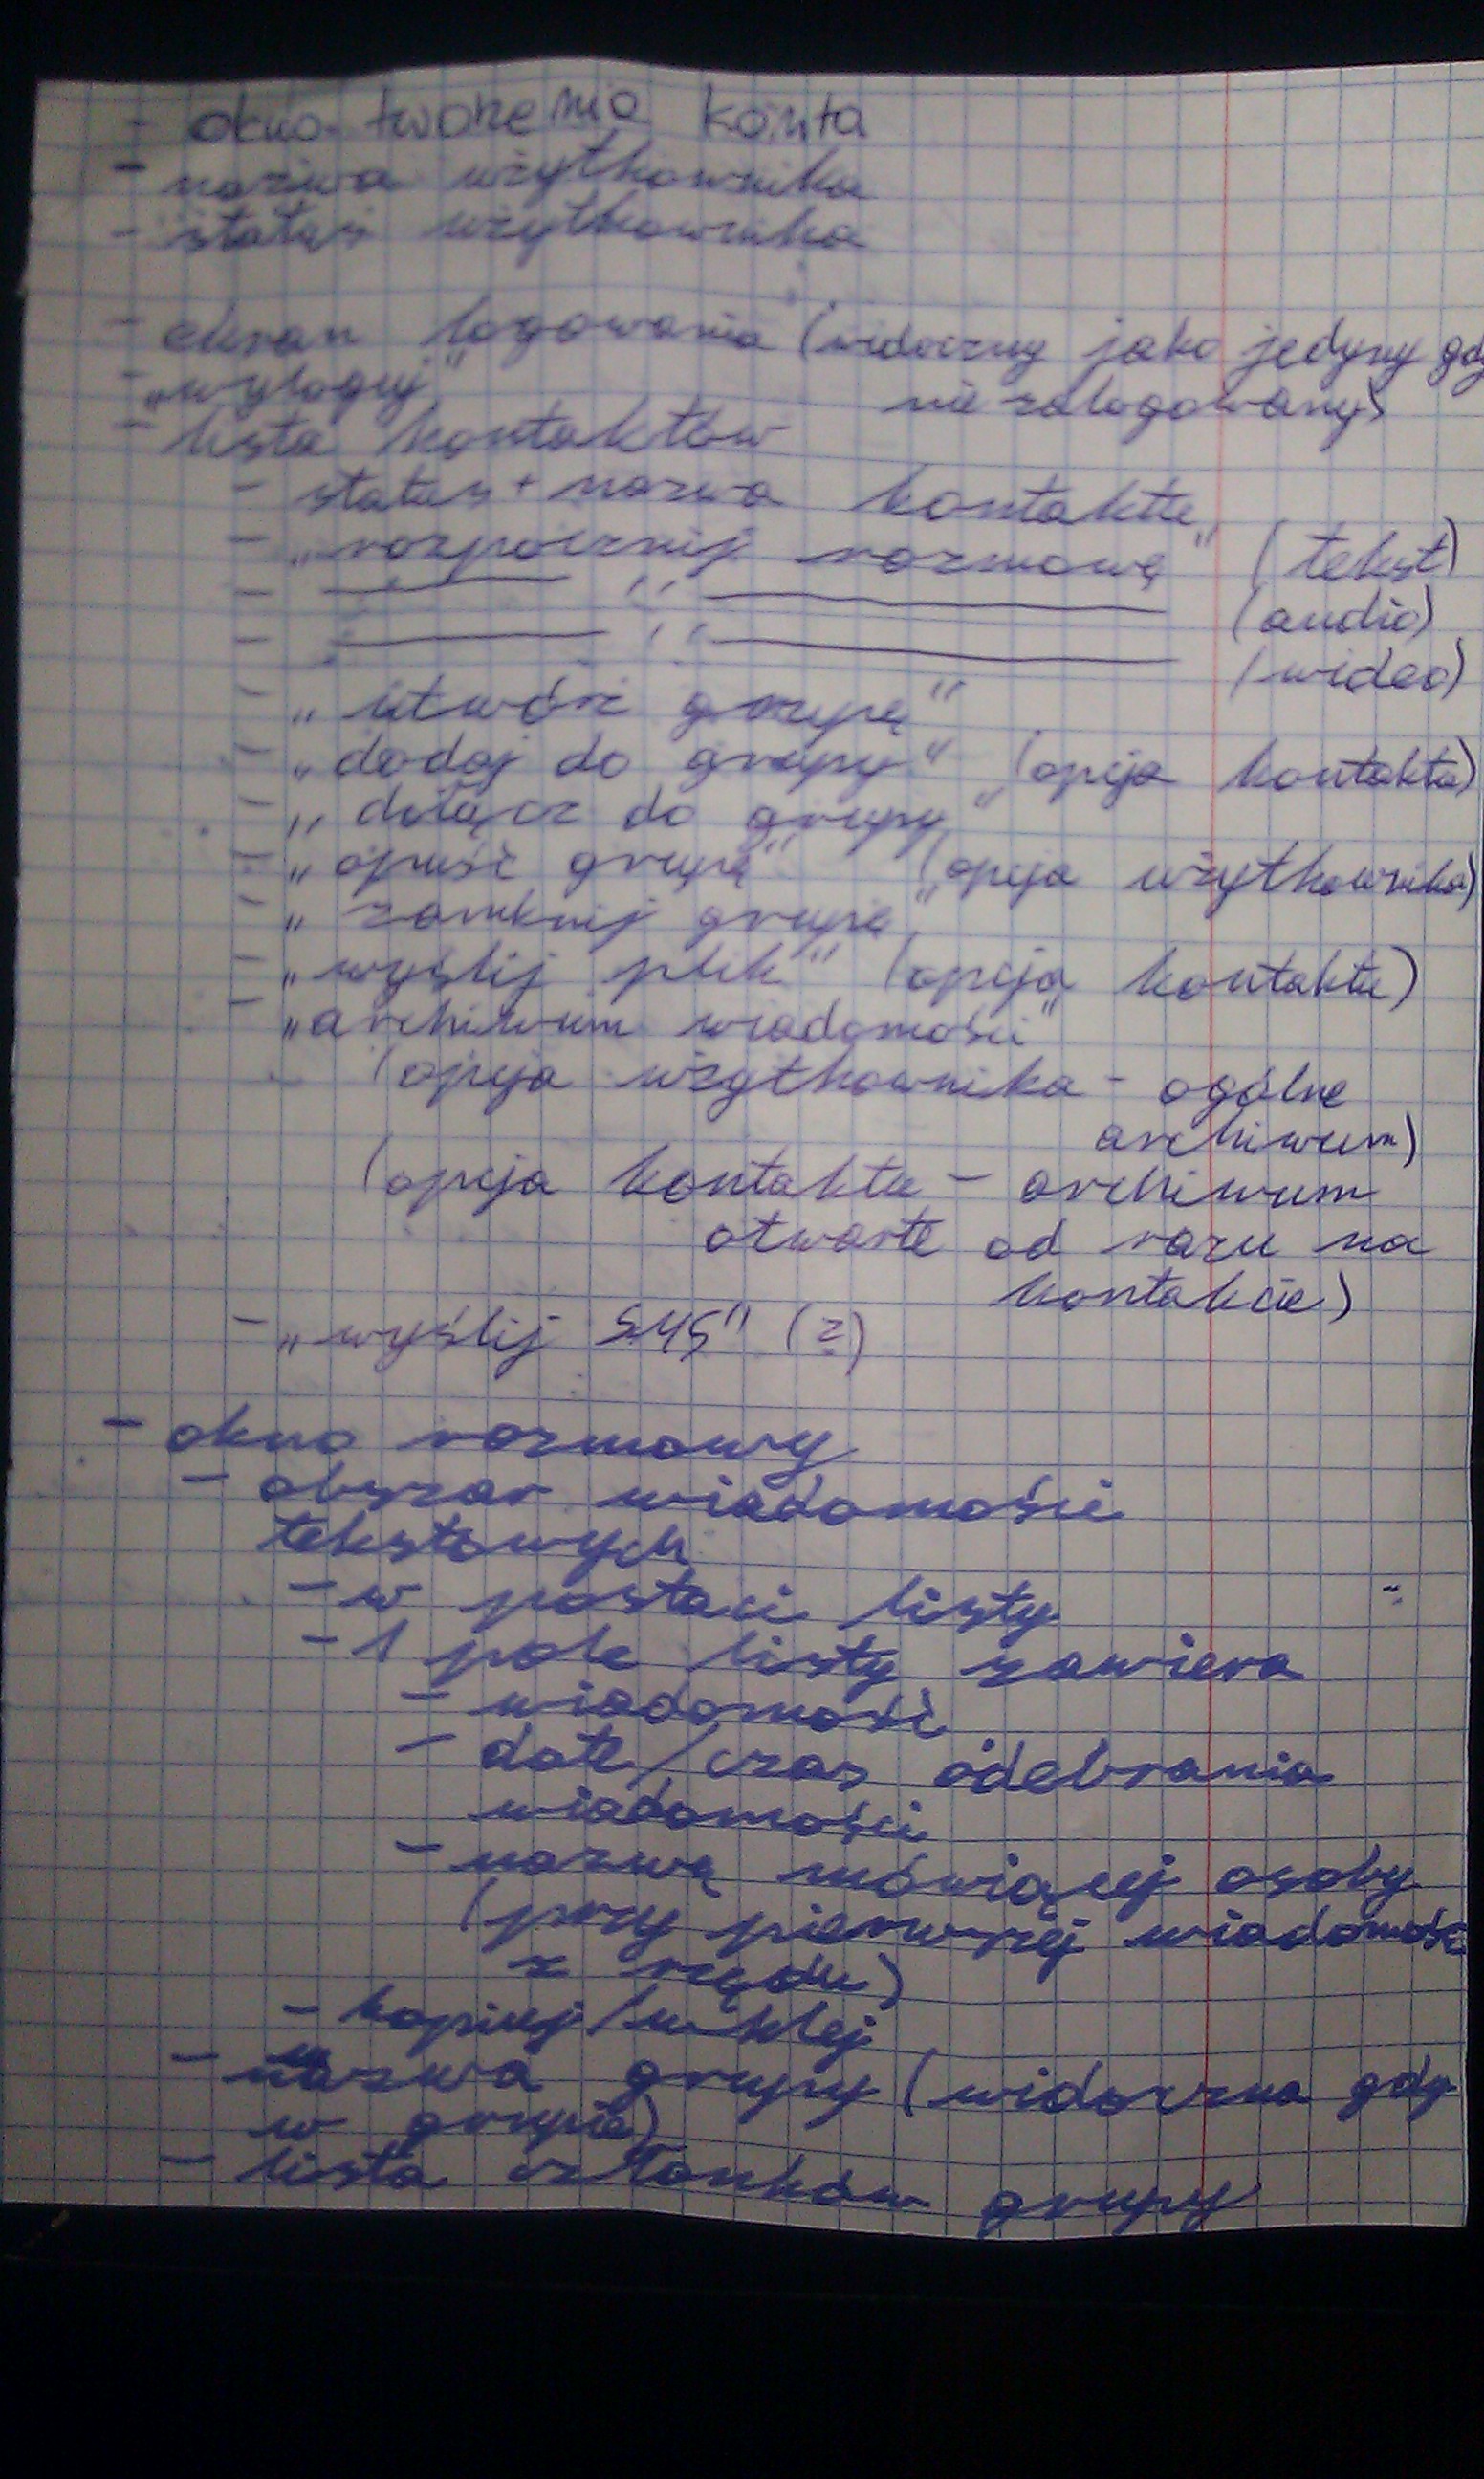 - okno tworzenia konta
- nazwa użytkownika
- status użytkownika
- ekran logowania (widoczny jako jedyny gdy
nie zalogowany)
- „wyloguj"
- lista kontaktów
- status + nazwa kontaktu
- „rozpocznij rozmowę" (tekst)
- —— '' —— (audio)
- —— '' —— (wideo)
- „utwórz grupę"
- „dodaj do grupy" (opcja kontaktu)
- „dołącz do grupy"
- „opuść grupę" (opcja użytkownika)
- „zamknij grupę"
- „wyślij plik" (opcja kontaktu)
- „archiwum wiadomości"
(opcja użytkownika - ogólne
archiwum)
(opcja kontaktu - archiwum
otwarte od razu na
kontakcie)
- „wyślij SMS" (?)
- okno rozmowy
- obszar wiadomości
tekstowych
- w postaci listy
- 1 pole listy zawiera
- wiadomość
- datę/czas odebrania
wiadomości
- nazwę mówiącej osoby
(przy pierwszej wiadomości
z rzędu)
- kopiuj/wklej
- nazwa grupy (widoczna gdy
w grupie)
- lista członków grupy